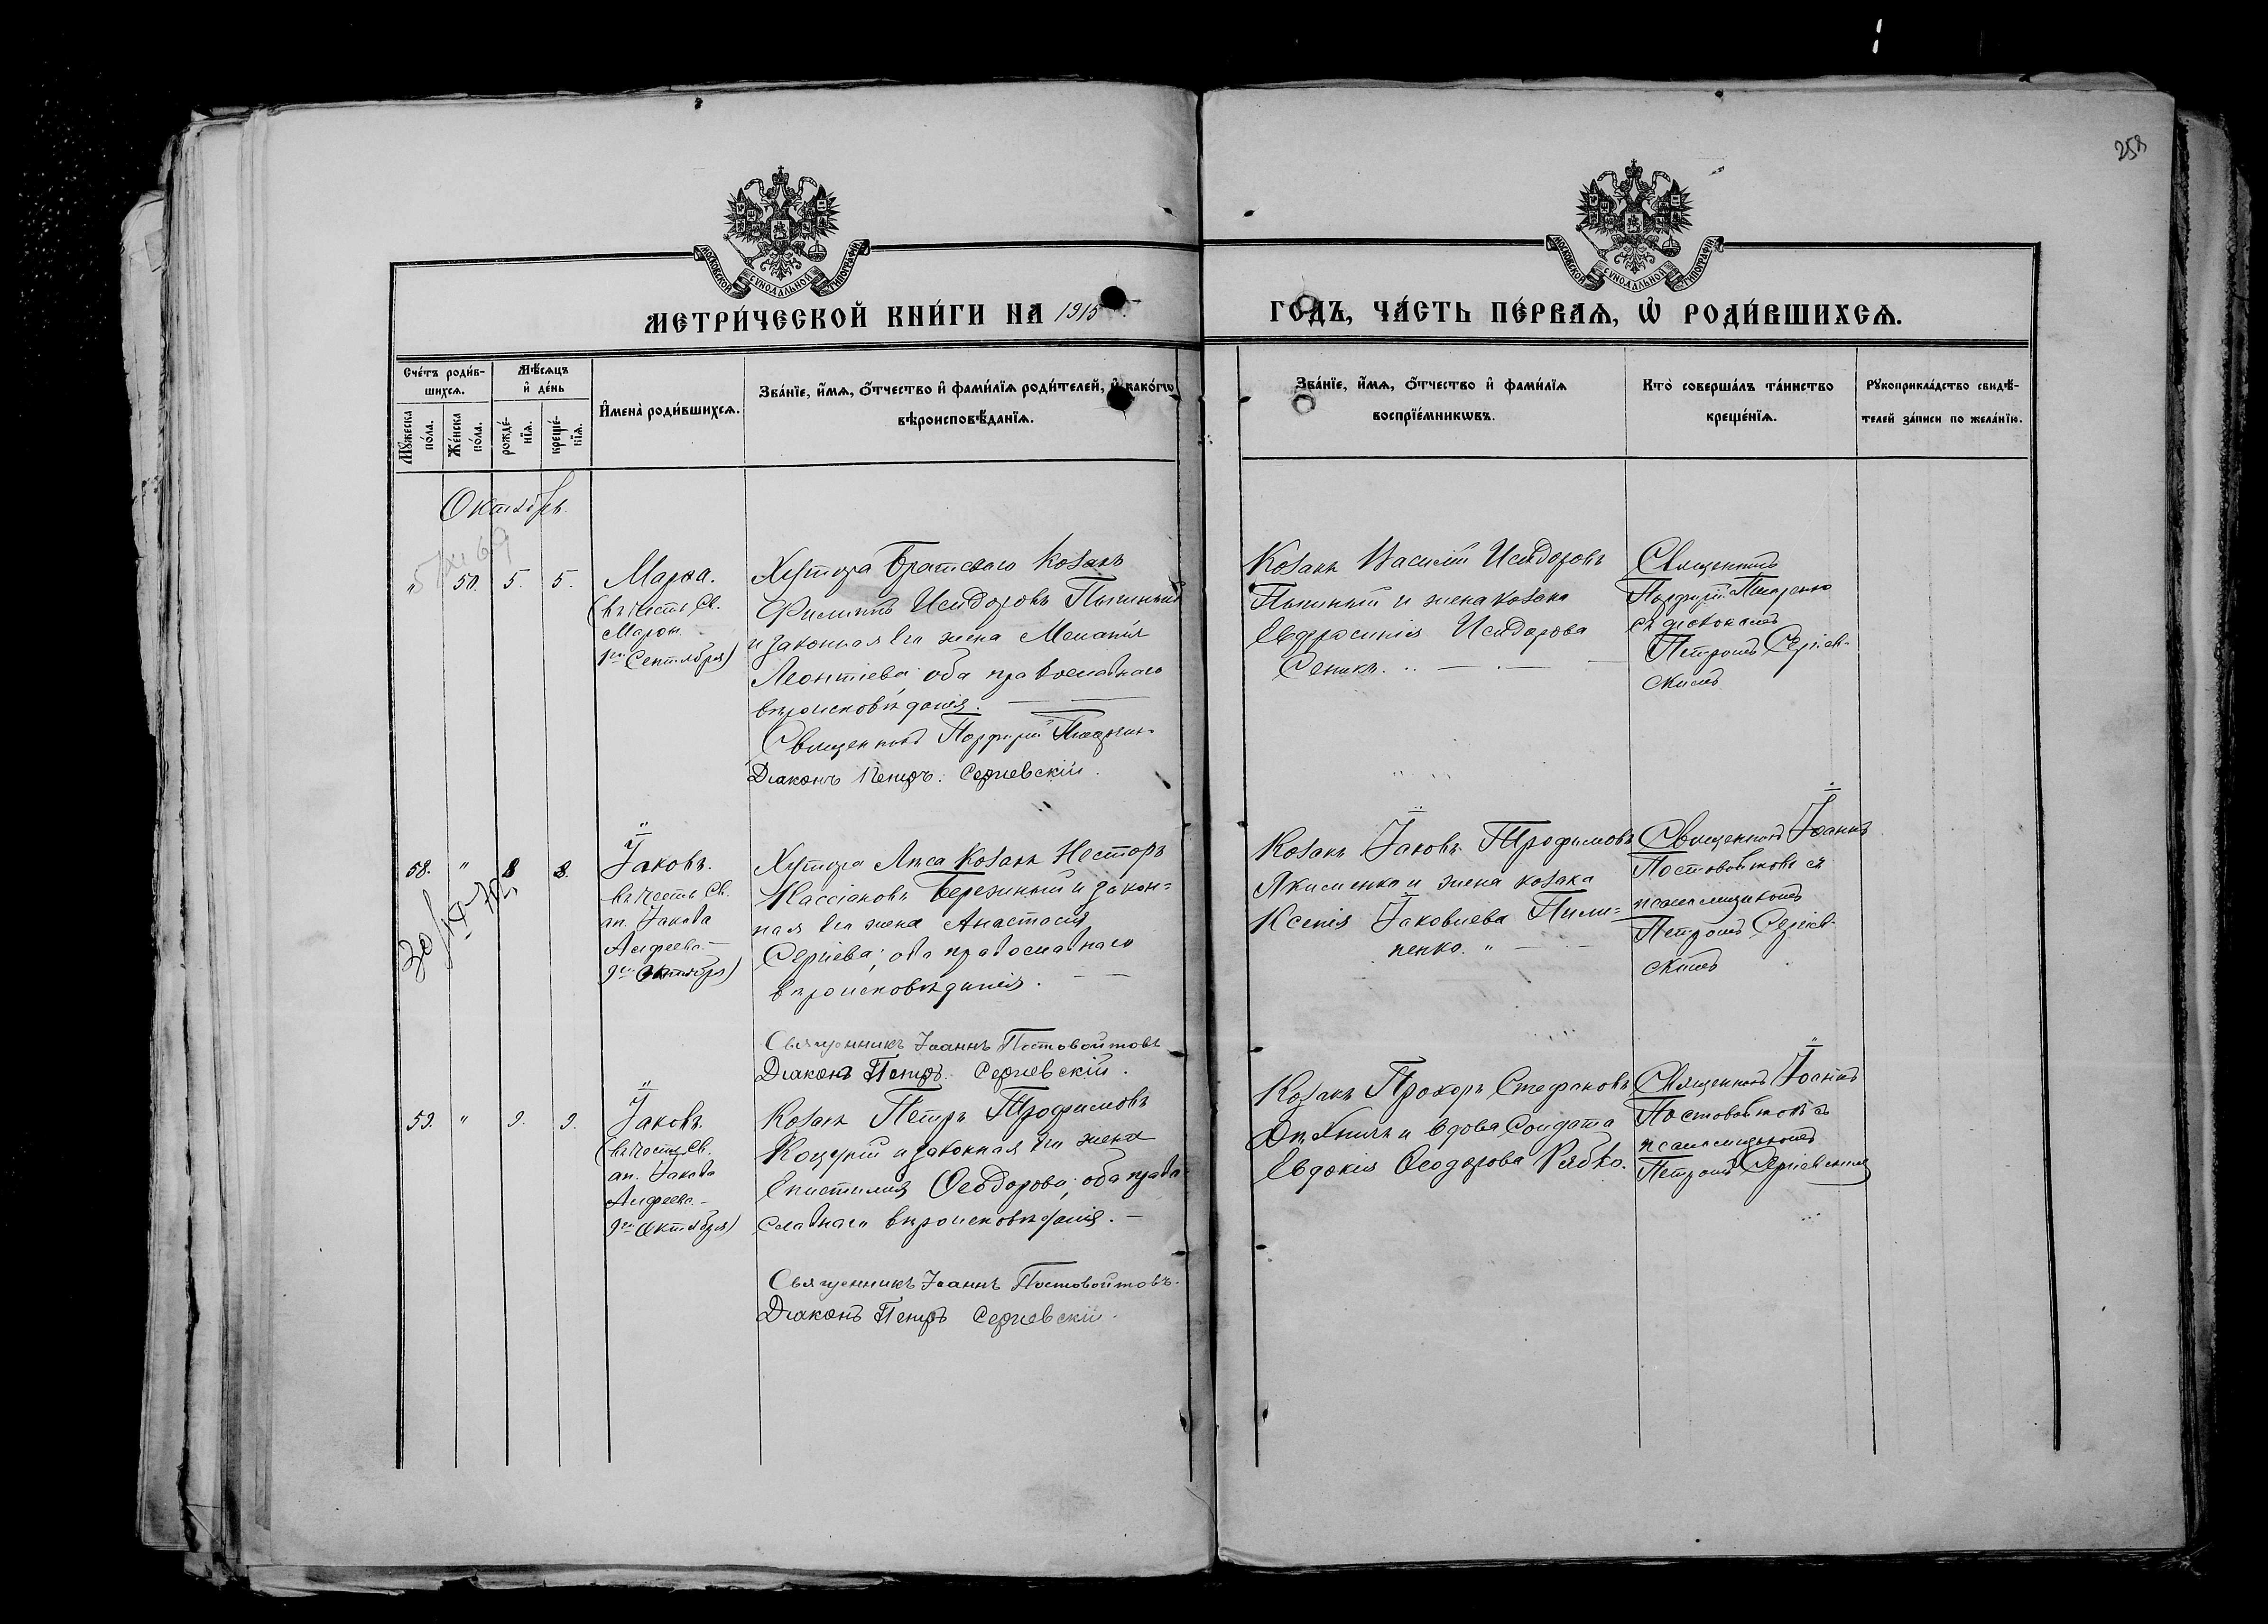 258
МОСКОВСКОЙ СУНОДАЛЬНОЙ ТИПОГРАФІИ
МОСКОВСКОЙ СУНОДАЛЬНОЙ ТИПОГРАФІИ
МЕТРИ́ЧЕСКОЙ КНИ́ГИ НА 1915
ГОДЪ, ЧА́СТЬ ПЕ́РВАѦ, Ѡ҆ РОДИ́ВШИХСѦ.
Сче́тъ роди́в-
шихсѧ.
Мꙋ́жеска по́ла.
Же́нска по́ла.
Мѣ́сѧцъ
и҆ де́нь
рожде́-
нїѧ.
креще́-
нїѧ.
И҆мена̀ роди́вшихсѧ.
Зва́нїе, и҆́мѧ, ѻ҆́тчество и҆ фами́лїѧ роди́телей, и҆ како́гѡ
вѣроисповѣ́данїѧ.
Зва́нїе, и҆́мѧ, ѻ҆́тчество и҆ фами́лїѧ
воспрїе́мникѡвъ.
Кто̀ соверша́лъ та́инство
креще́нїѧ.
Рꙋкоприкла́дство свидѣ́-
телей за́писи по жела́нїю.
Октябрь.
" 50. 5. 5.
Марѳа.
(въ честь Св.
1го Сентября)
Хутора Братского козакъ
Филиппъ Исидоровъ
и законная его жена Меланія
Леонтіева; оба православнаго
вѣроисповѣданія.
Священникъ Порфирій
Діаконъ Петръ Сергіевскій.
Козакъ Василій Исидоровъ
и жена козака
Евфросинія Исидорова
Сеникъ.
Священникъ
Порфирій
съ діакономъ
Петромъ Сергіев-
скимъ
58. " 8 8.
Іаковъ.
въ честь Св.
ап. Іакова
Алфеева.
9го Октября)
Хутора Лиса козакъ Несторъ
Кассіановъ Бережный и закон=
ная его жена Анастасія
Сергіева; оба православнаго
вѣроисповѣданія.
Священникъ Іоаннъ Постовойтовъ
Діаконъ Петръ Сергіевскій.
Козакъ Іаковъ Трофимовъ
Якименко и жена козака
Ксенія Іаковлева Пили=
пенко. "
Священникъ Іоаннъ
Постовойтовъ съ
псаломщикомъ
Петромъ Сергіев-
скимъ
59. " 9. 9.
Іаковъ.
(въ честь Св.
ап. Іакова
Алфеева.
9го Октября)
Козакъ Петръ Трофимовъ
Коцупій и законная его жена
Епистимія Ѳеодорова; оба право
славнаго вѣроисповѣданія.
Священникъ Іоаннъ Постовойтовъ.
Діаконъ Петръ Сергіевскій.
Козакъ Прохоръ Стефановъ
и вдова Солдата
Евдокія Ѳеодорова Рябко.
Священникъ Іоаннъ
Постовойтовъ съ
псаломщикомъ
Петромъ Сергіевскимъ